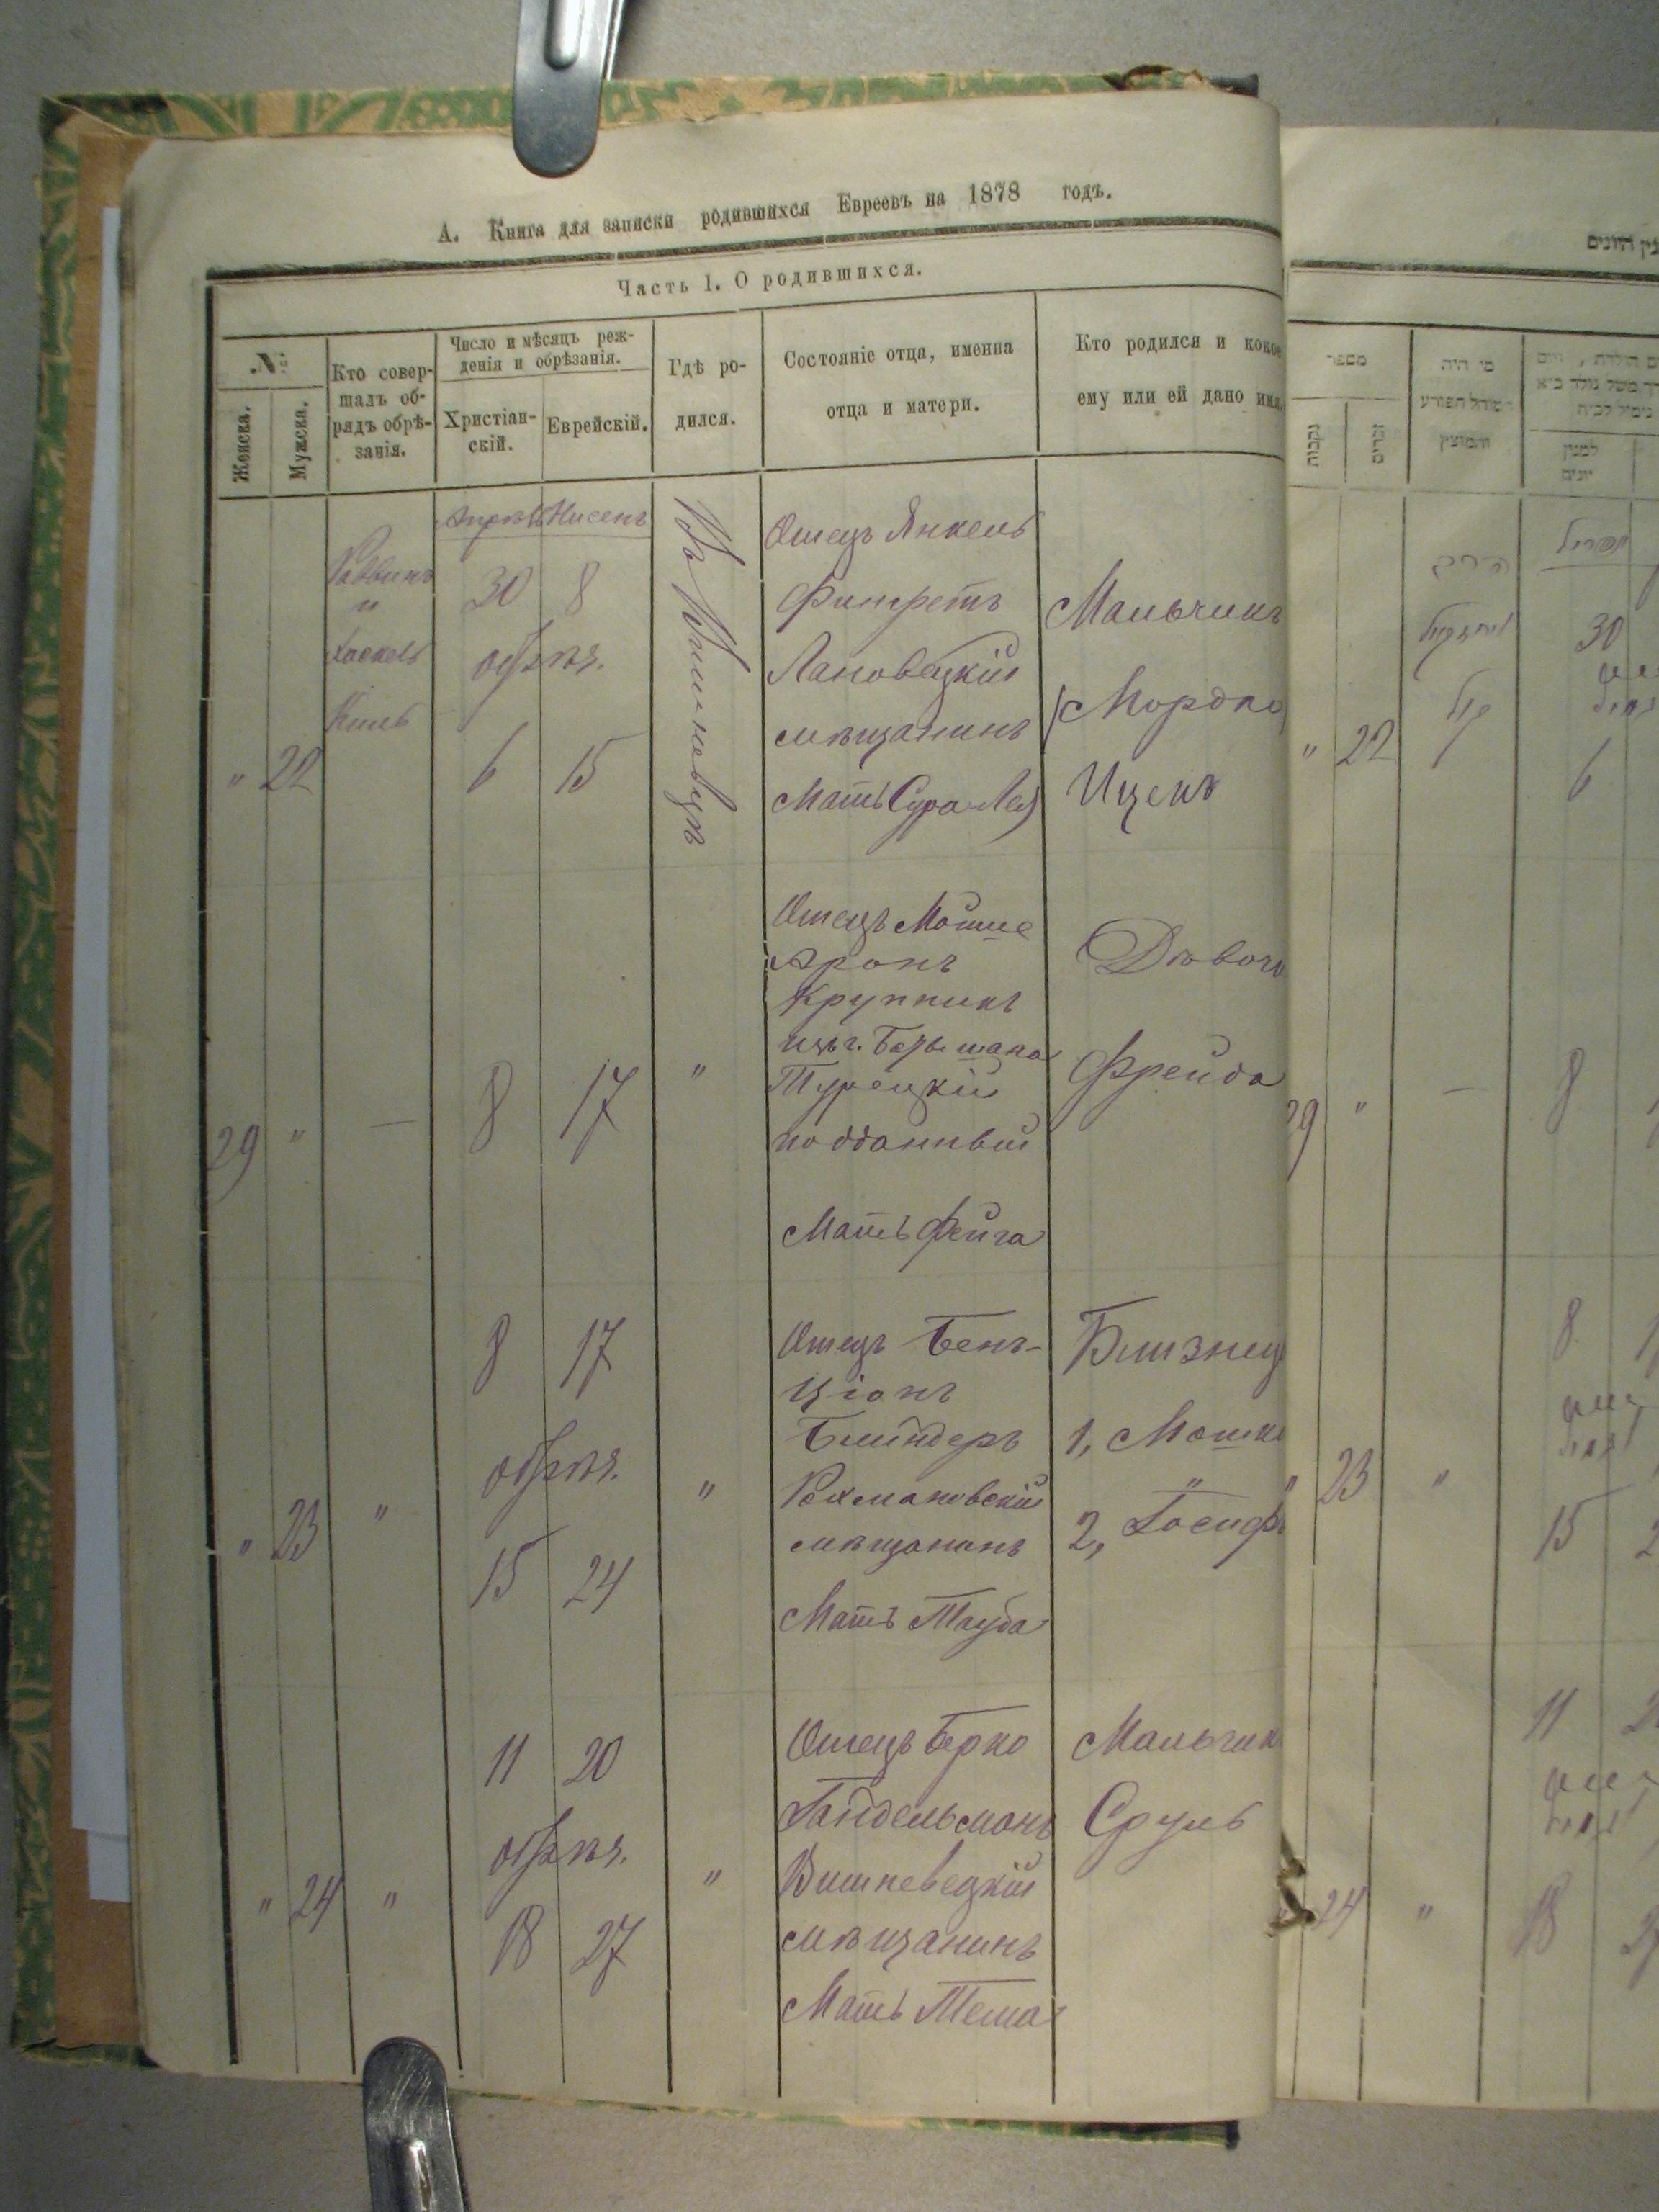 А. Книга для записки родившихся Евреевъ на 1878 годъ.
Часть 1. О родившихся.
№
Женска.
Мужска.
Кто совер-
шалъ об-
рядъ обрѣ-
занія.
Число и мѣсяцъ реж-
денія и обрѣзанія.
Христіан-
скій.
Еврейскій.
Гдѣ ро-
дился.
Состояніе отца, именна
отца и матери.
Кто родился и кокое
ему или ей дано имя.
" 22
Раввинъ
и
Хаскель
Апрѣль Нисенъ
30 8
обрѣз.
6 15
Въ Вишневцѣ
Отецъ Янкель
Лановецкій
мѣщанинъ
Мать Сура Лея
Мальчикъ
Мордко
Ицекъ
29 " — 8 17 "
Отецъ Мошце
Аронъ
Крупникъ
Турецкій
подданный
Мать Фейга
Дѣвоч
Фрейда
" 23 "
8 17
обрѣз.
15 24
"
Отецъ Бенъ-
Ціонъ
Блиндеръ
Рахмановскій
мѣщанинъ
Мать Тауба
Близнец
1, Мошко
2, Іосифъ
" 24 "
11 20
обрѣз.
18 27
"
Отецъ Берко
Гандельманъ
Вишневецкій
мѣщанинъ
Мать Тема
Мальчик
Сруль
מספר
נקבות
זכרים
מי היה
המוהל הפורע
והמוצץ
למנין
יונים
" 22
30
6
29 " — 8
23 "
8
15
24 "
11
18